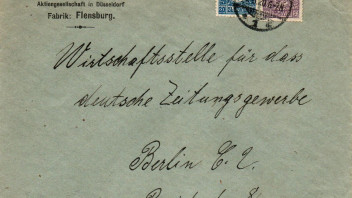 Aktiengesellschaft in Düsseldorf
Fabrik: Flensburg.
Wirtschaftsstelle für dass
deutsche Zeitungsgewerbe
Berlin C. 2.